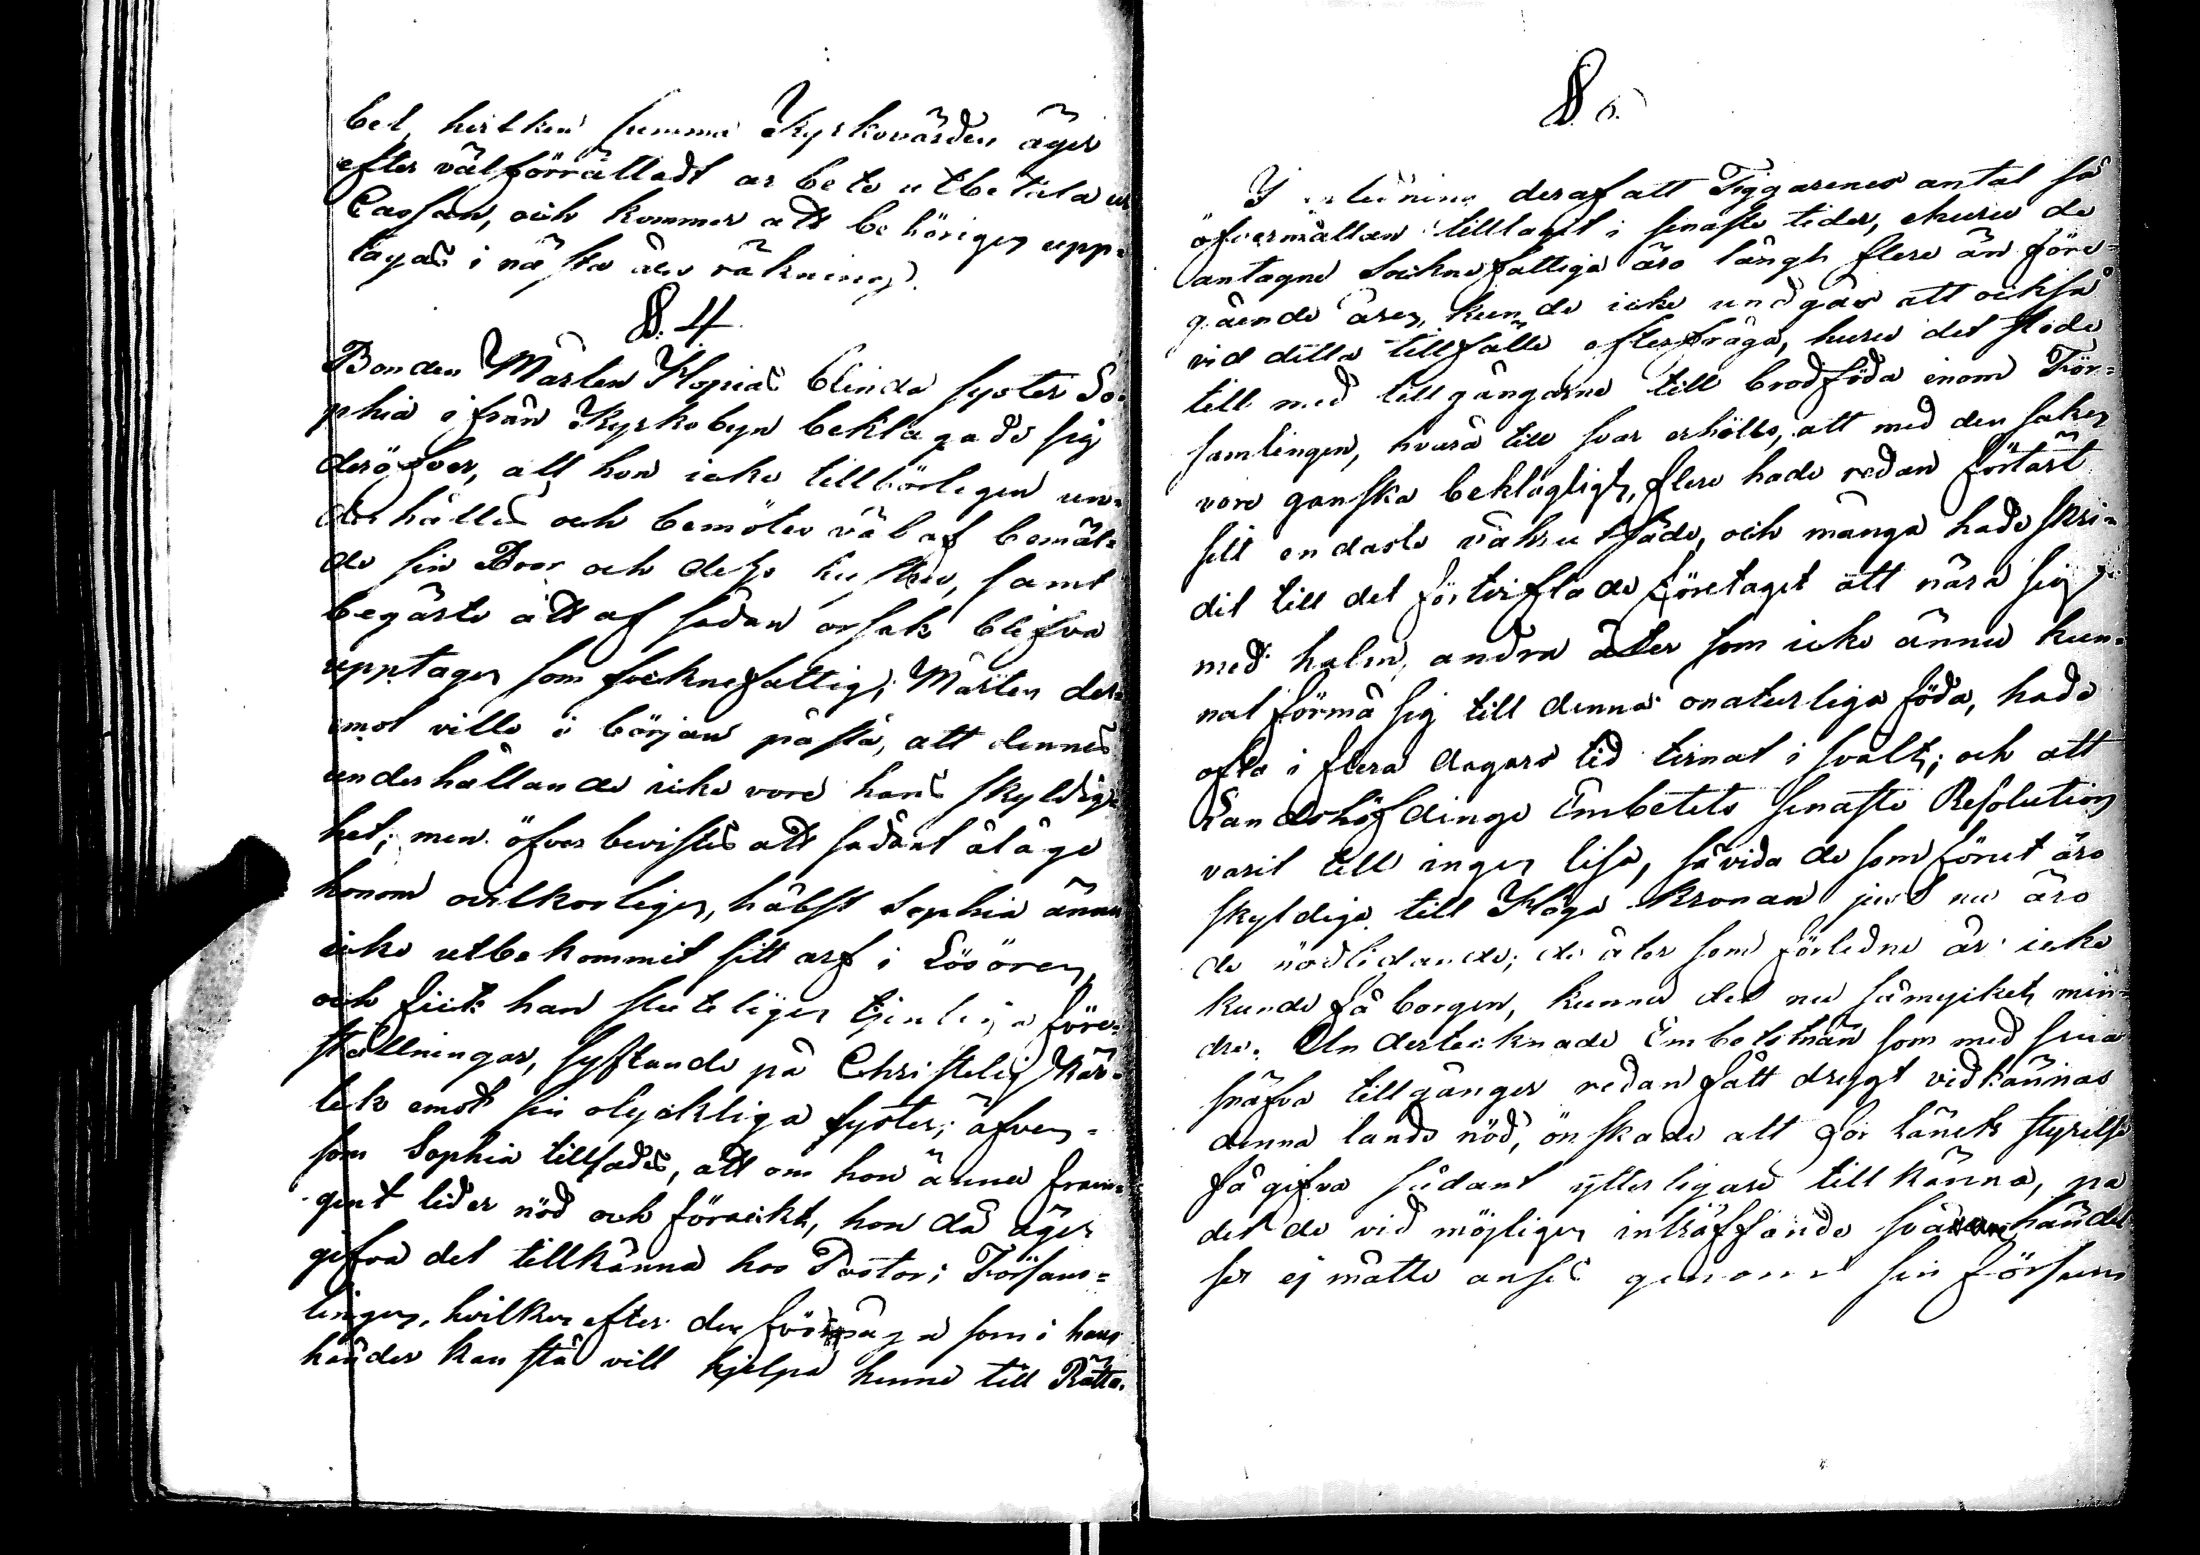 bel, hvilken summa Kyrkovärden äger
efter välförrättadt arbete utbetala ur
Cassan, och kommer att behörigen upp-
tagas i nästa års räkning.
§. 4.
Bonden Mårten Klopias blinda syster So-
phia ifrån Kyrkobyn beklagade sig
deröfver, att hon icke tillbörligen un-
derhålles och bemötes väl af bemäl-
de sin Bror och dess hustru, samt
begärte att af sådan orsak blifva
upptagen som socknefattig; Mårten der-
emot ville i början påstå, att dennes
underhållande icke vore hans skyldig-
het; men öfverbevistes att sådant åläge
honom ovilkorligen, hälst Sophia ännu
icke utbekommit sitt arf i Lösören,
och fick han sluteligen tjenliga före-
ställningar, syftande på Christelig kär-
lek emot sin olyckliga syster; äfven-
som Sophia tillsades, att om hon ännu fram-
gent lider nöd och förackt, hon då äger
gifva det tillkänna hos Pastor i Försam-
lingen, hvilken efter den förmåga som i hans
händer kan stå vill hjelpa henne till Rätta.
§. 5.
I anledning deraf att Tiggarenes antal så
öfvermåttan tilltagit i senaste tider, ehuru de
antagne Socknefattiga äro långt flere än före-
gående åren, kunde icke undgås att också
vid detta tillfälle efterfråga, huru det stode
till med tillgångarne till brodföda inom För-
samlingen, hvara till svar erhölls, att med den saken
vore ganska beklagligt, flere hade redan förtärt
sitt endaste utsäde, och många hade skri-
dit till det förtviflade företaget att nära sig
med halm, andra åter som icke ännu kun-
nat förmå sig till denna onaturliga föda, hade
ofta i flera dagars tid tirnat i svält; och att
Landshöfdinge Embetets senaste Resolution
varit till ingen lisa, såvida de som förut äro
skyldiga till Höga Kronan just nu äro
de nödlidande; de åter som förledne år icke
kunde få borgen, kunna det nu såmycket min-
dre. Undertecknade Embetsmän som med sina
snäfva tillgånger redan fått drygt vidkännas
denna lands nöd, önskade att för länets styrelse
få gifva sådant ytterligare tillkänna, på
det de vid möjligen inträffande svåra händel-
ser ej måtte anses genom sin försum